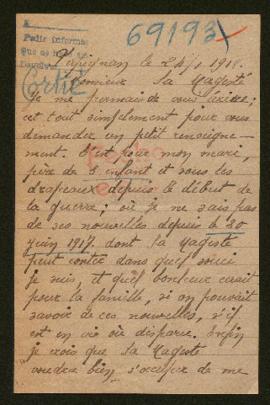 69193
A
Pedir informes
que se
Perpignan le 2 1918.
Monsieur Sa Magesté
Je me permais de vous écrire;
cet tout simplement pour vous
dimander, un petit renseigne-
ment. C'est pour mon mari,
père de 5 enfant et sous les
drapeaux depuis le début de
la guerre; où je ne sais pas
de ses nouvelles depuis le 20
juin 1917. dont Sa Magesté
peut contre dans quel souci
je suis, et quel bonheur serait
pour la famille, si on pouvait
savoir de ces nouvelles, s'il
est en vie où disparu. Enfin
je crois que Sa Magesté
voudra bien s'occuper de me